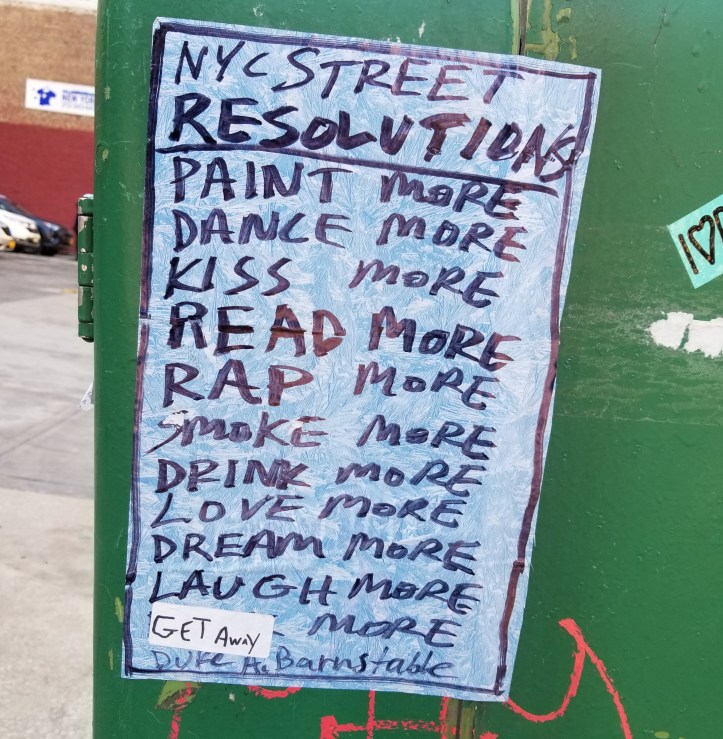 NYC STREET
RESOLUTIONS
PAINT MORE
DANCE MORE
KISS MORE
READ MORE
RAP MORE
SMOKE MORE
DRINK MORE
LOVE MORE
DREAM MORE
LAUGH MORE
GET AWAY MORE
Duke A. Barnstable
I♡
NEW YORK